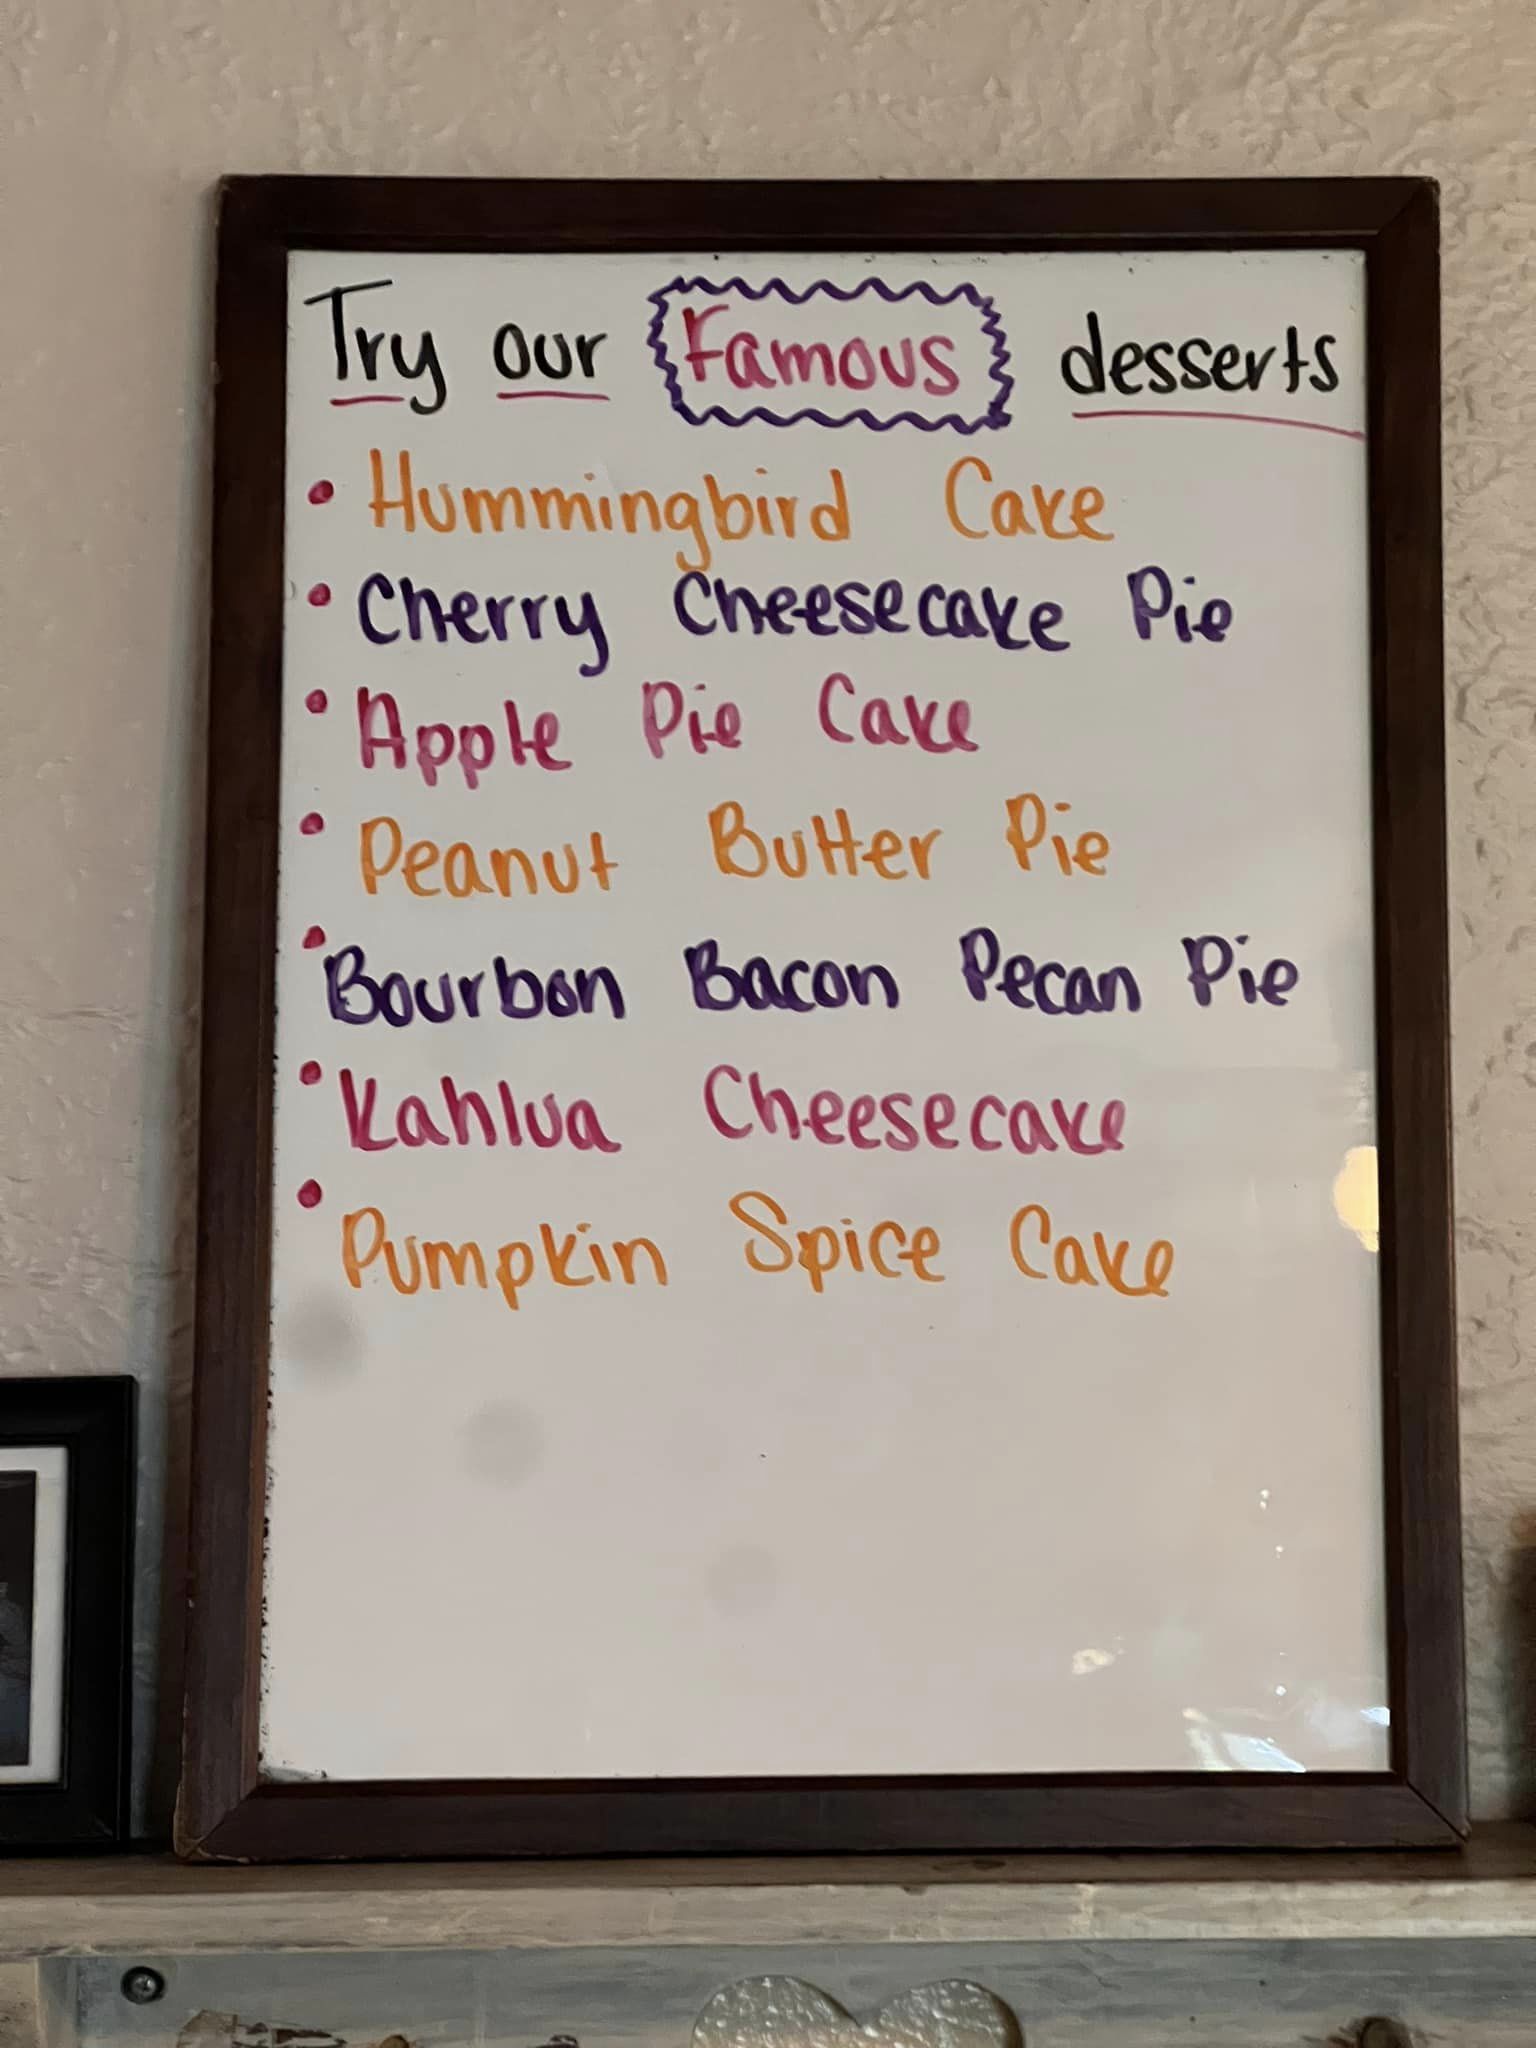 Try our Famous desserts
• Hummingbird Cake
• Cherry Cheesecake Pie
• Apple Pie Cake
• Peanut Butter Pie
• Bourbon Bacon Pecan Pie
• Kahlua Cheesecake
• Pumpkin Spice Cake